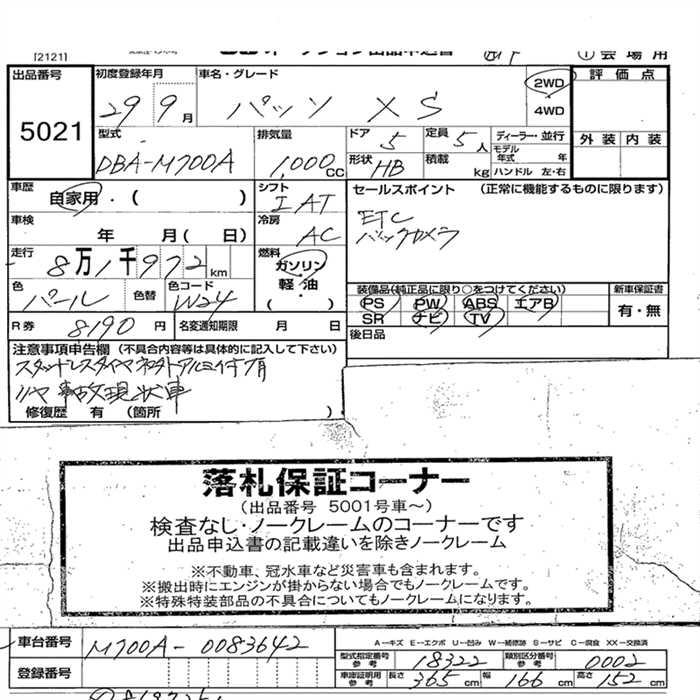 [2121] オークション出品申込書 ①会場用
出品番号 5021
初度登録年月 29 9月
車名・グレード パッソ XS
2WD
4WD
評価点
外装 内装
型式 DBA-M700A
排気量 1,000cc
ドア 5
定員 5人
形状 HB
積載 kg
ディーラー・並行
モデル年式 年
ハンドル 左・右
車歴 自家用・( )
シフト IAT
セールスポイント (正常に機能するものに限ります)
ETC
バックカメラ
車検 年 月(日)
冷房 AC
走行 8万1千972km
燃料 ガソリン
軽油・
( )
色 パール
色替
色コード W24
装備品(純正品に限り○をつけてください)
PS PW ABS エアB
SR ナビ TV
新車保証書
有・無
R券 8190円
名変通知期限 月 日
後日品
注意事項申告欄 (不具合内容等は具体的に記入して下さい)
スタッドレスタイヤマネキトアルミ付有
リヤ事故現状車
修復歴 有 (箇所 )
落札保証コーナー
(出品番号 5001号車～)
検査なし・ノークレームのコーナーです
出品申込書の記載違いを除きノークレーム
※不動車、冠水車など災害車も含まれます。
※搬出時にエンジンが掛からない場合でもノークレームです。
※特殊特装部品の不具合についてもノークレームになります。
車台番号 M700A-0083642
A-キズ E-エクボ U-凹み W-補修跡 S-サビ C-腐食 XX-交換済
型式指定番号参考 18322
類別区分番号参考 0002
登録番号
車庫証明用参考 長さ 365cm 幅 166cm 高さ 152cm